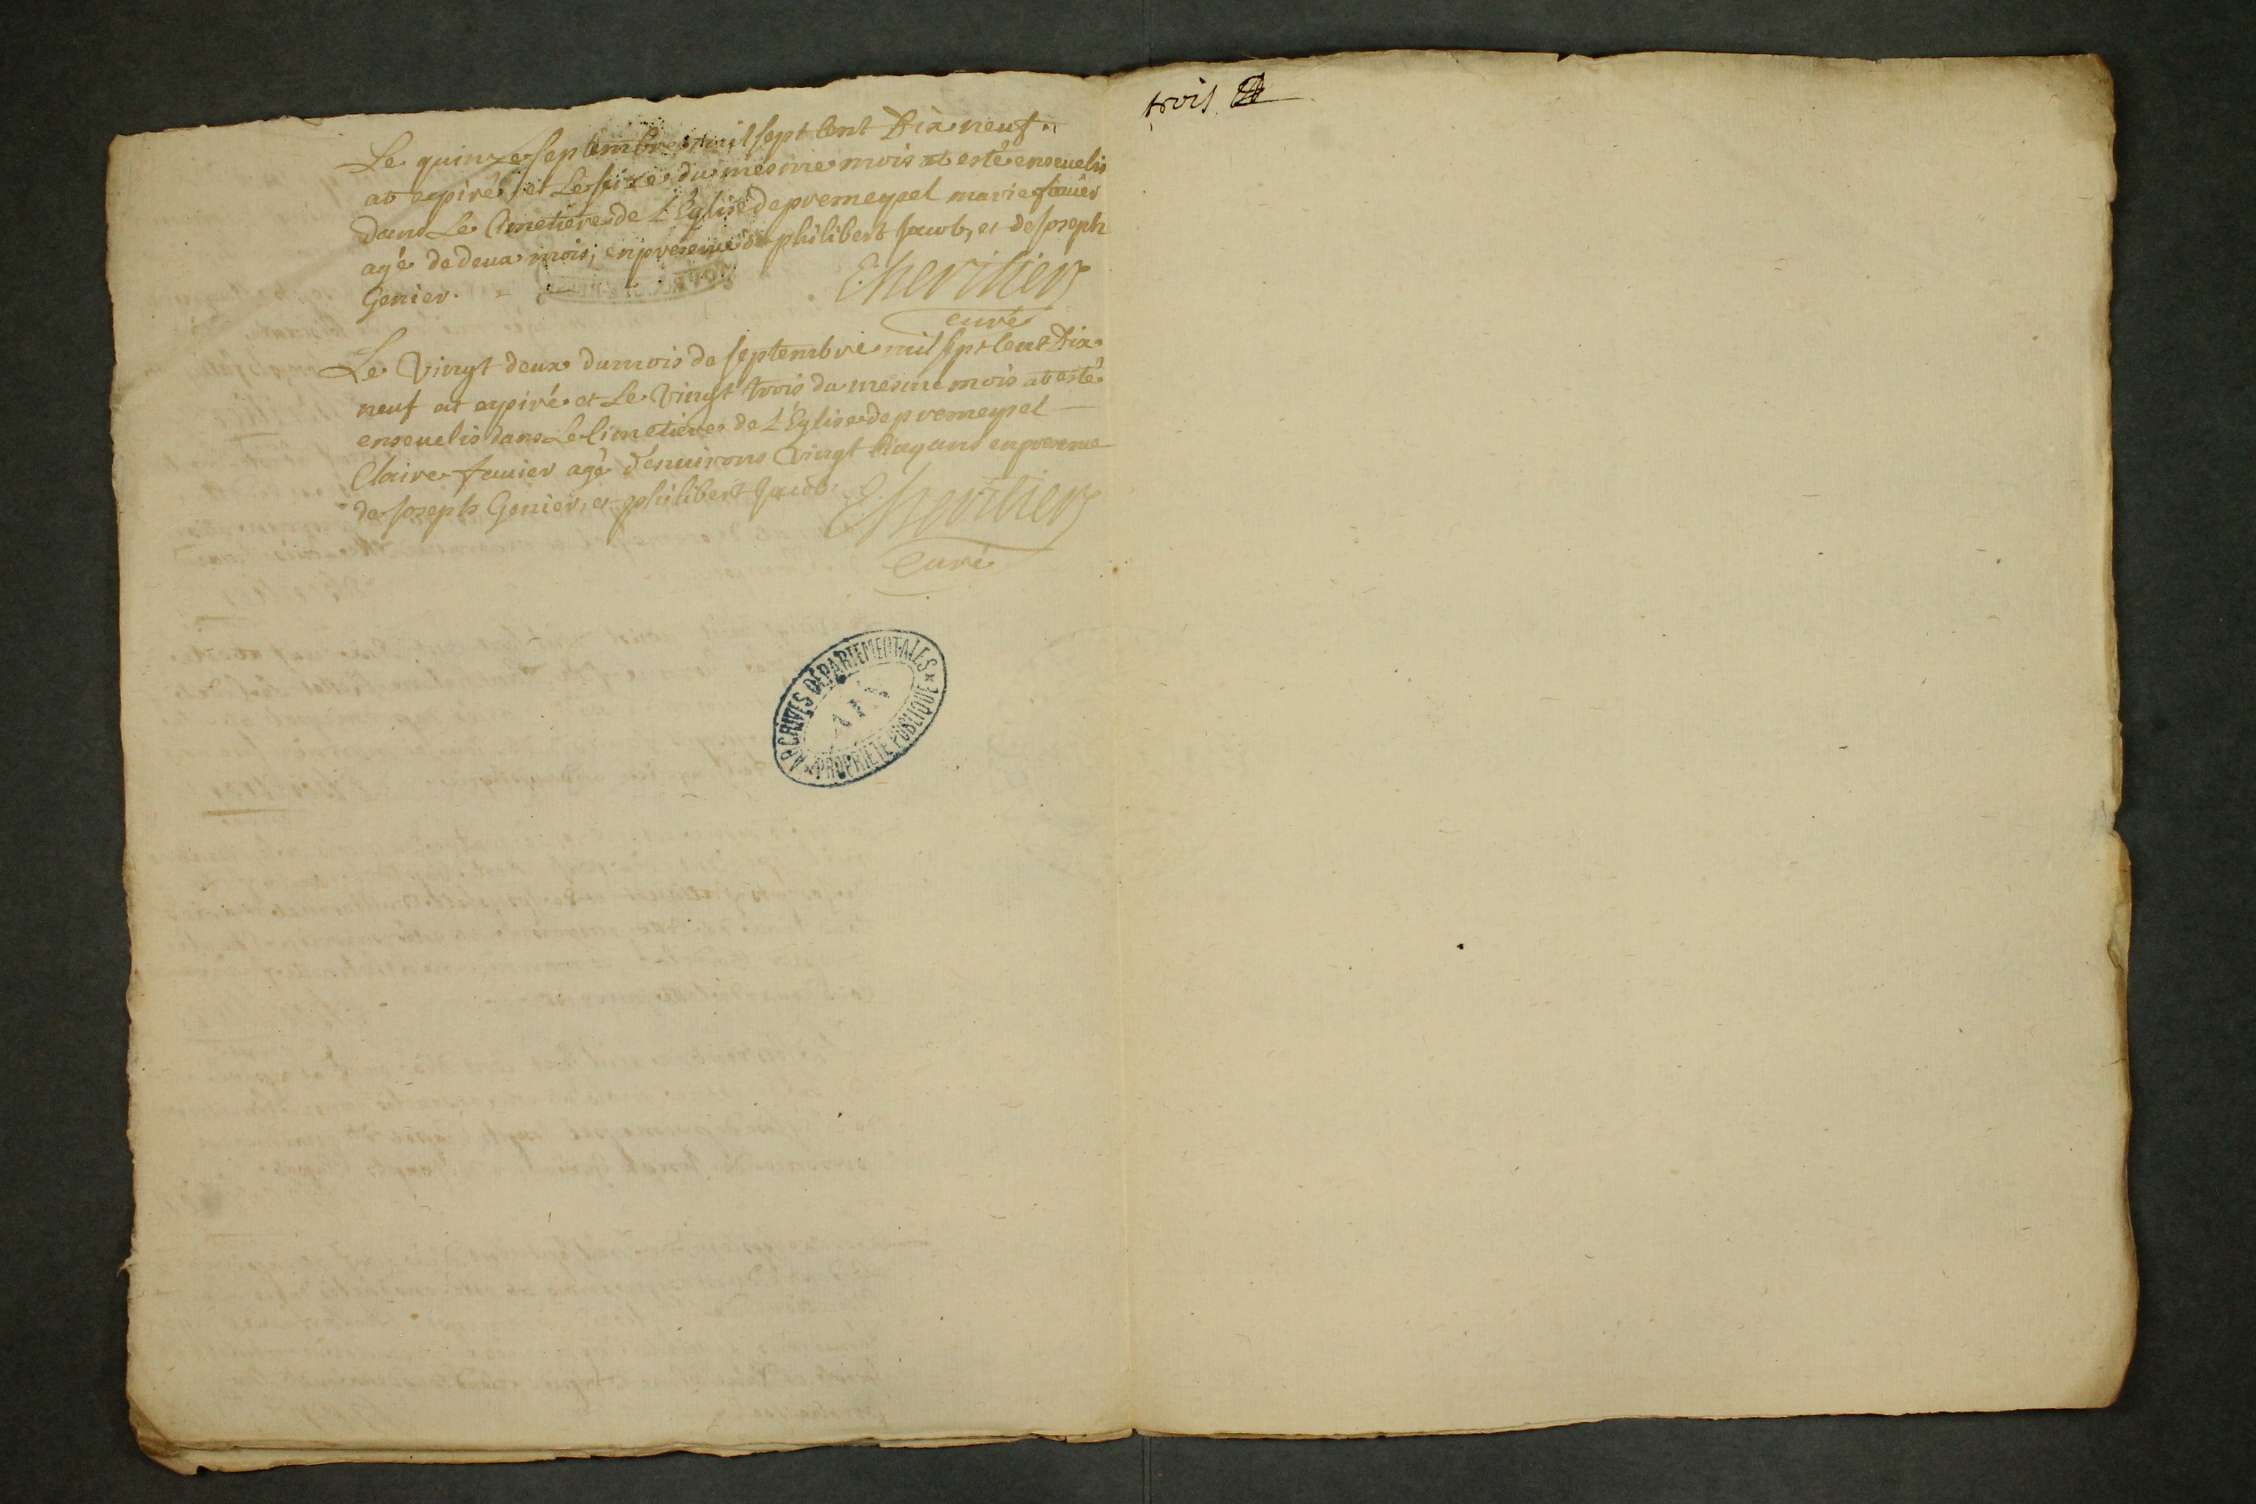 Le quinze septembre mil sept cent Dix neuf
at expiré et Le seize du mesme mois at esté enseuelis
dans Le Cimetiere de L'Eglise de premeyzel marie feuier
agé de deux mois, en presence de philibert Jacob, et de Joseph
Genier.
Chevitier
curé
Le Vingt deux du mois de septembre mil sept cent Dix
neuf at expiré et Le Vingt trois du mesme mois at esté
enseuelis dans Le Cimetiere de L'Eglise de premeyzel
Claire feuier agé d'enuirons Vingt ans en presence
de Joseph Genier, et philibert Jacob
Chevitier
Curé
ARCHIVES DÉPARTEMENTALES
AIN
PROPRIÉTÉ PUBLIQUE
trois